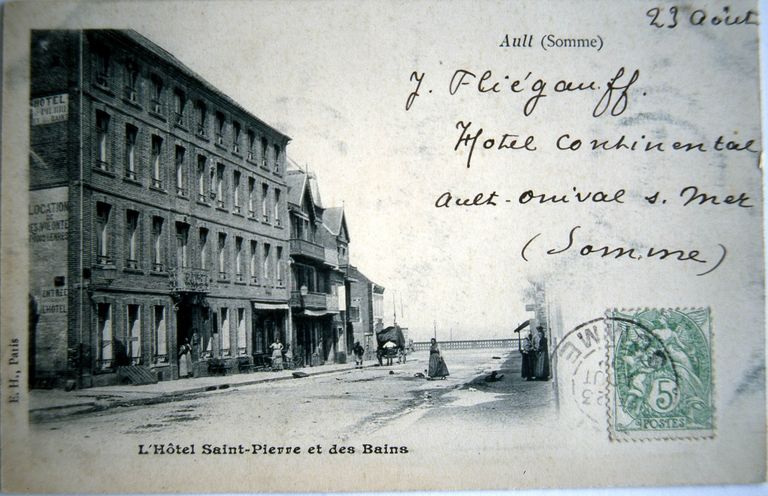 23 Août
Ault (Somme)
J. Fliégauff.
Hotel Continental
Ault-Onival s. Mer
(Somme)
HOTEL
LOCATION
ENTRÉE
HOTEL
E. H., Paris
5c
POSTES
L'Hôtel Saint-Pierre et des Bains